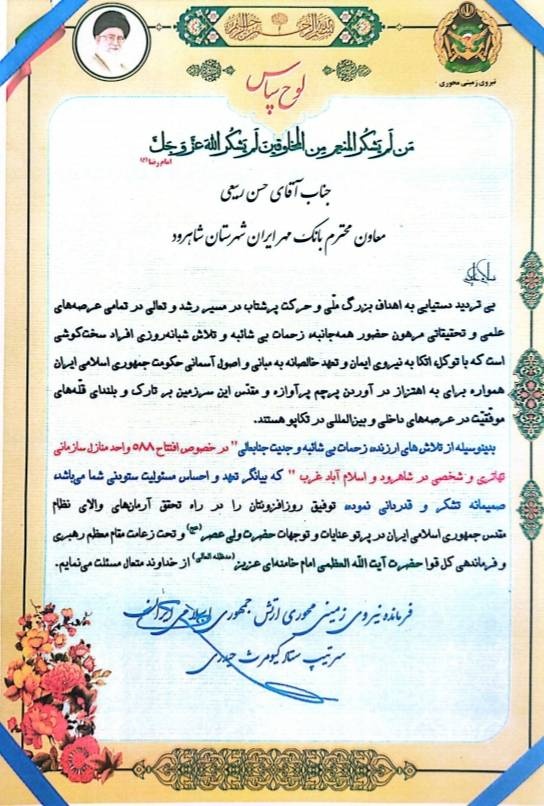 نیروی زمینی محوری
لوح سپاس
مَن لَم یَشکُرِ المُنعِمَ مِنَ المَخلوقینَ لَم یَشکُرِ اللهَ عَزَّ وَجَلَّ
امام رضا (ع)
جناب آقای حسن ربیعی
معاون محترم بانک مهر ایران شهرستان شاهرود
بی تردید دستیابی به اهداف بزرگ ملّی و حرکت پرشتاب در مسیر رشد و تعالی در تمامی عرصه‌های
علمی و تحقیقاتی مرهون حضور همه‌جانبه، زحمات بی شائبه و تلاش شبانه‌روزی افراد سخت‌کوشی
است که با توکل، اتکا به نیروی ایمان و تعهد خالصانه به مبانی و اصول آسمانی حکومت جمهوری اسلامی ایران
همواره برای به اهتزاز در آوردن پرچم پرآوازه و مقدّس این سرزمین بر تارک و بلندای قلّه‌های
موفقیّت در عرصه‌های داخلی و بین‌المللی در تکاپو هستند.
بدینوسیله از تلاش های ارزنده، زحمات بی شائبه و جدیت جنابعالی "در خصوص افتتاح ۵۸۸ واحد منازل سازمانی
تهاتری و شخصی در شاهرود و اسلام آباد غرب " که بیانگر تعهد و احساس مسئولیت ستودنی شما می‌باشد،
صمیمانه تشکر و قدردانی نموده، توفیق روزافزونتان را در راه تحقق آرمان‌های والای نظام
مقدس جمهوری اسلامی ایران در پرتو عنایات و توجهات حضرت ولی عصر (عج) و تحت زعامت مقام معظم رهبری
و فرماندهی کل قوا حضرت آیت الله العظمی امام خامنه‌ای عزیز (مدظله العالی) از خداوند متعال مسئلت می‌نمایم.
فرمانده نیروی زمینی محوری ارتش جمهوری اسلامی ایران
سرتیپ ستاد کیومرث حیدری